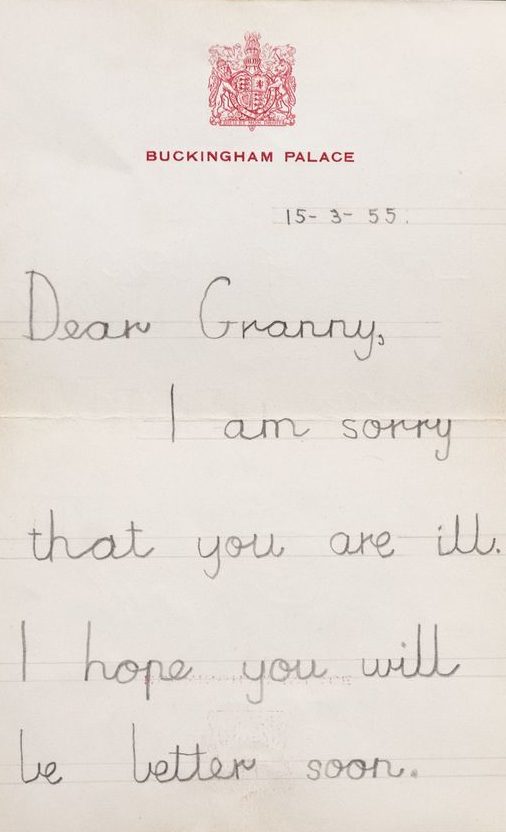 BUCKINGHAM PALACE
15-3-55.
Dear Granny,
I am sorry
that you are ill.
I hope you will
be better soon.